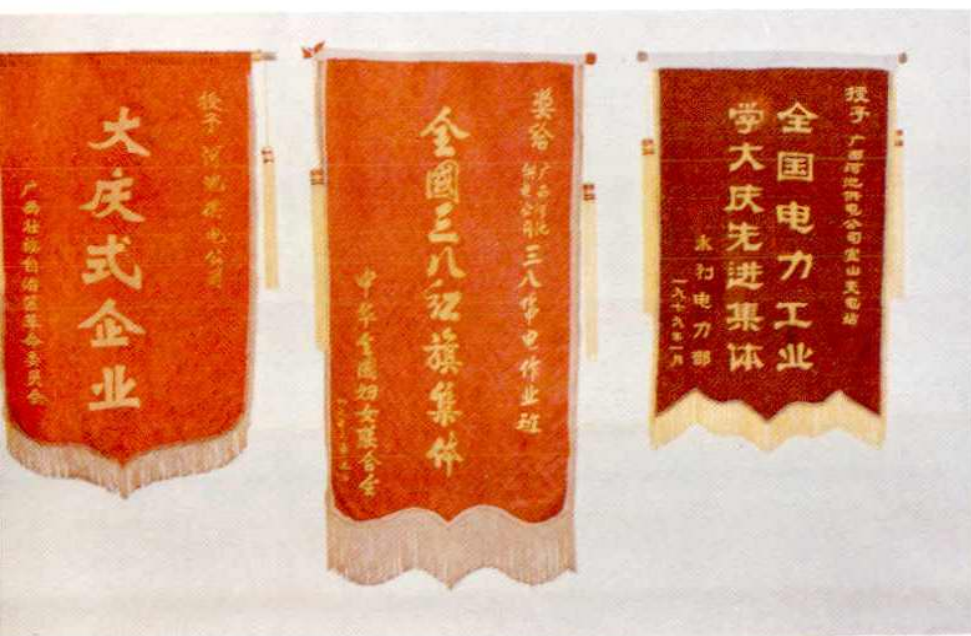 授予 河池供电公司
大庆式企业
广西壮族自治区革命委员会
奖给 广西河池
供电公司 三八带电作业班
全國三八红旗集体
中华全國妇女联合会
授予 广西河池供电公司
全国电力工业
学大庆先进集体
水利电力部
一九七九年一月